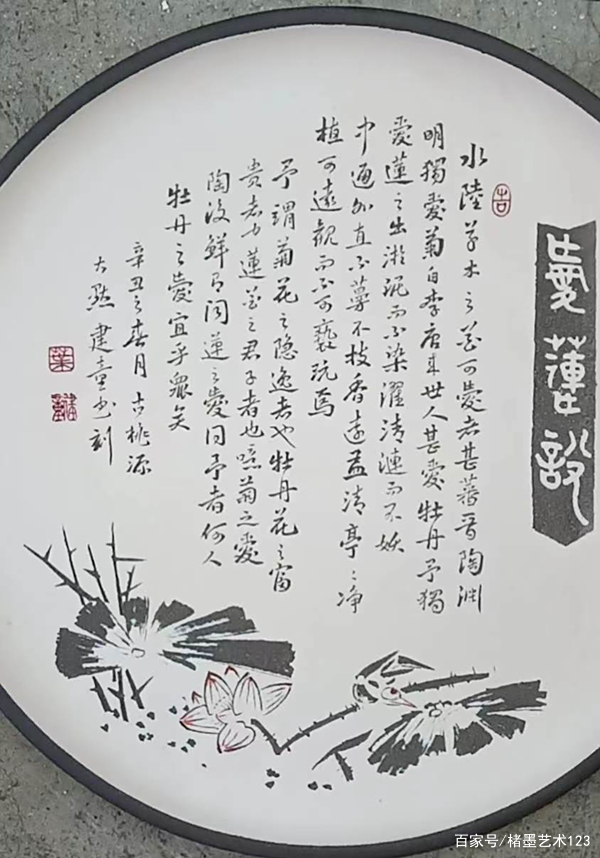 愛蓮說
吉
水陸草木之花可愛者甚蕃晉陶淵
明獨愛菊自李唐来世人甚愛牡丹予獨
愛蓮之出淤泥而不染濯清漣而不妖
中通外直不蔓不枝香遠益清亭〻净
植可遠觀而不可褻玩焉
予謂菊花之隐逸者也牡丹花之富
贵者也蓮花之君子者也噫菊之愛
陶後鮮有闻蓮之愛同予者何人
牡丹之愛宜乎眾矣
辛丑之春月古桃源
大 建童书刻
葉
百家号/楮墨艺术123